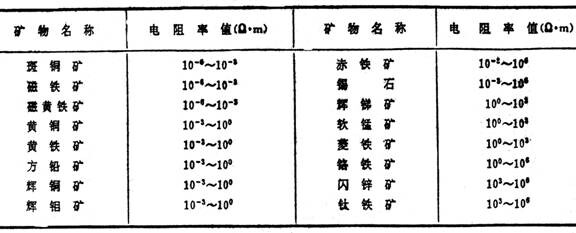 矿物名称 电阻率值(Ω·m) 矿物名称 电阻率值(Ω·m)
斑铜矿 10⁻⁶~10⁻³ 赤铁矿 10⁻²~10⁶
磁铁矿 10⁻⁶~10⁻³ 锡石 10⁻³~10⁶
磁黄铁矿 10⁻⁶~10⁻³ 辉锑矿 10⁰~10³
黄铜矿 10⁻³~10⁰ 软锰矿 10⁰~10³
黄铁矿 10⁻³~10⁰ 菱铁矿 10⁰~10³
方铅矿 10⁻³~10⁰ 铬铁矿 10⁰~10⁶
辉铜矿 10⁻³~10⁰ 闪锌矿 10³~10⁶
辉钼矿 10⁻³~10⁰ 钛铁矿 10³~10⁶